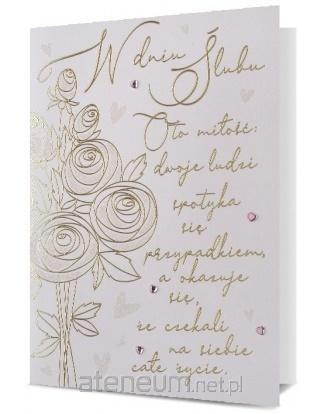 W dniu Ślubu
Oto miłość:
dwoje ludzi
spotyka
się
przypadkiem,
a okazuje
się,
że czekali
na siebie
całe życie.
ateneum.net.pl